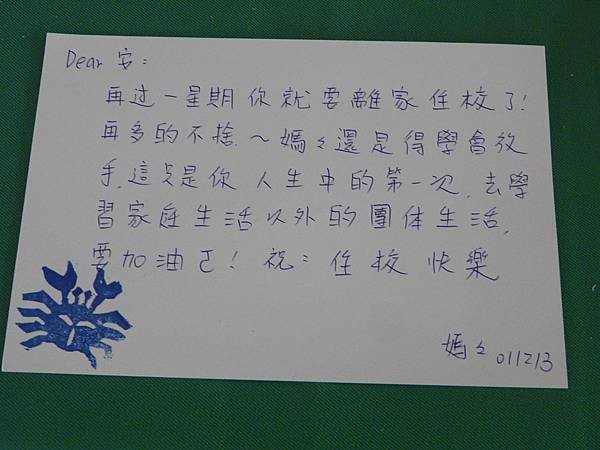 Dear 安：
再过一星期你就要離家住校了！
再多的不捨～媽々還是得學會放
手，這只是你人生中的第一次，去學
習家庭生活以外的團体生活，
要加油ㄛ！祝：住校快樂
媽々 011213